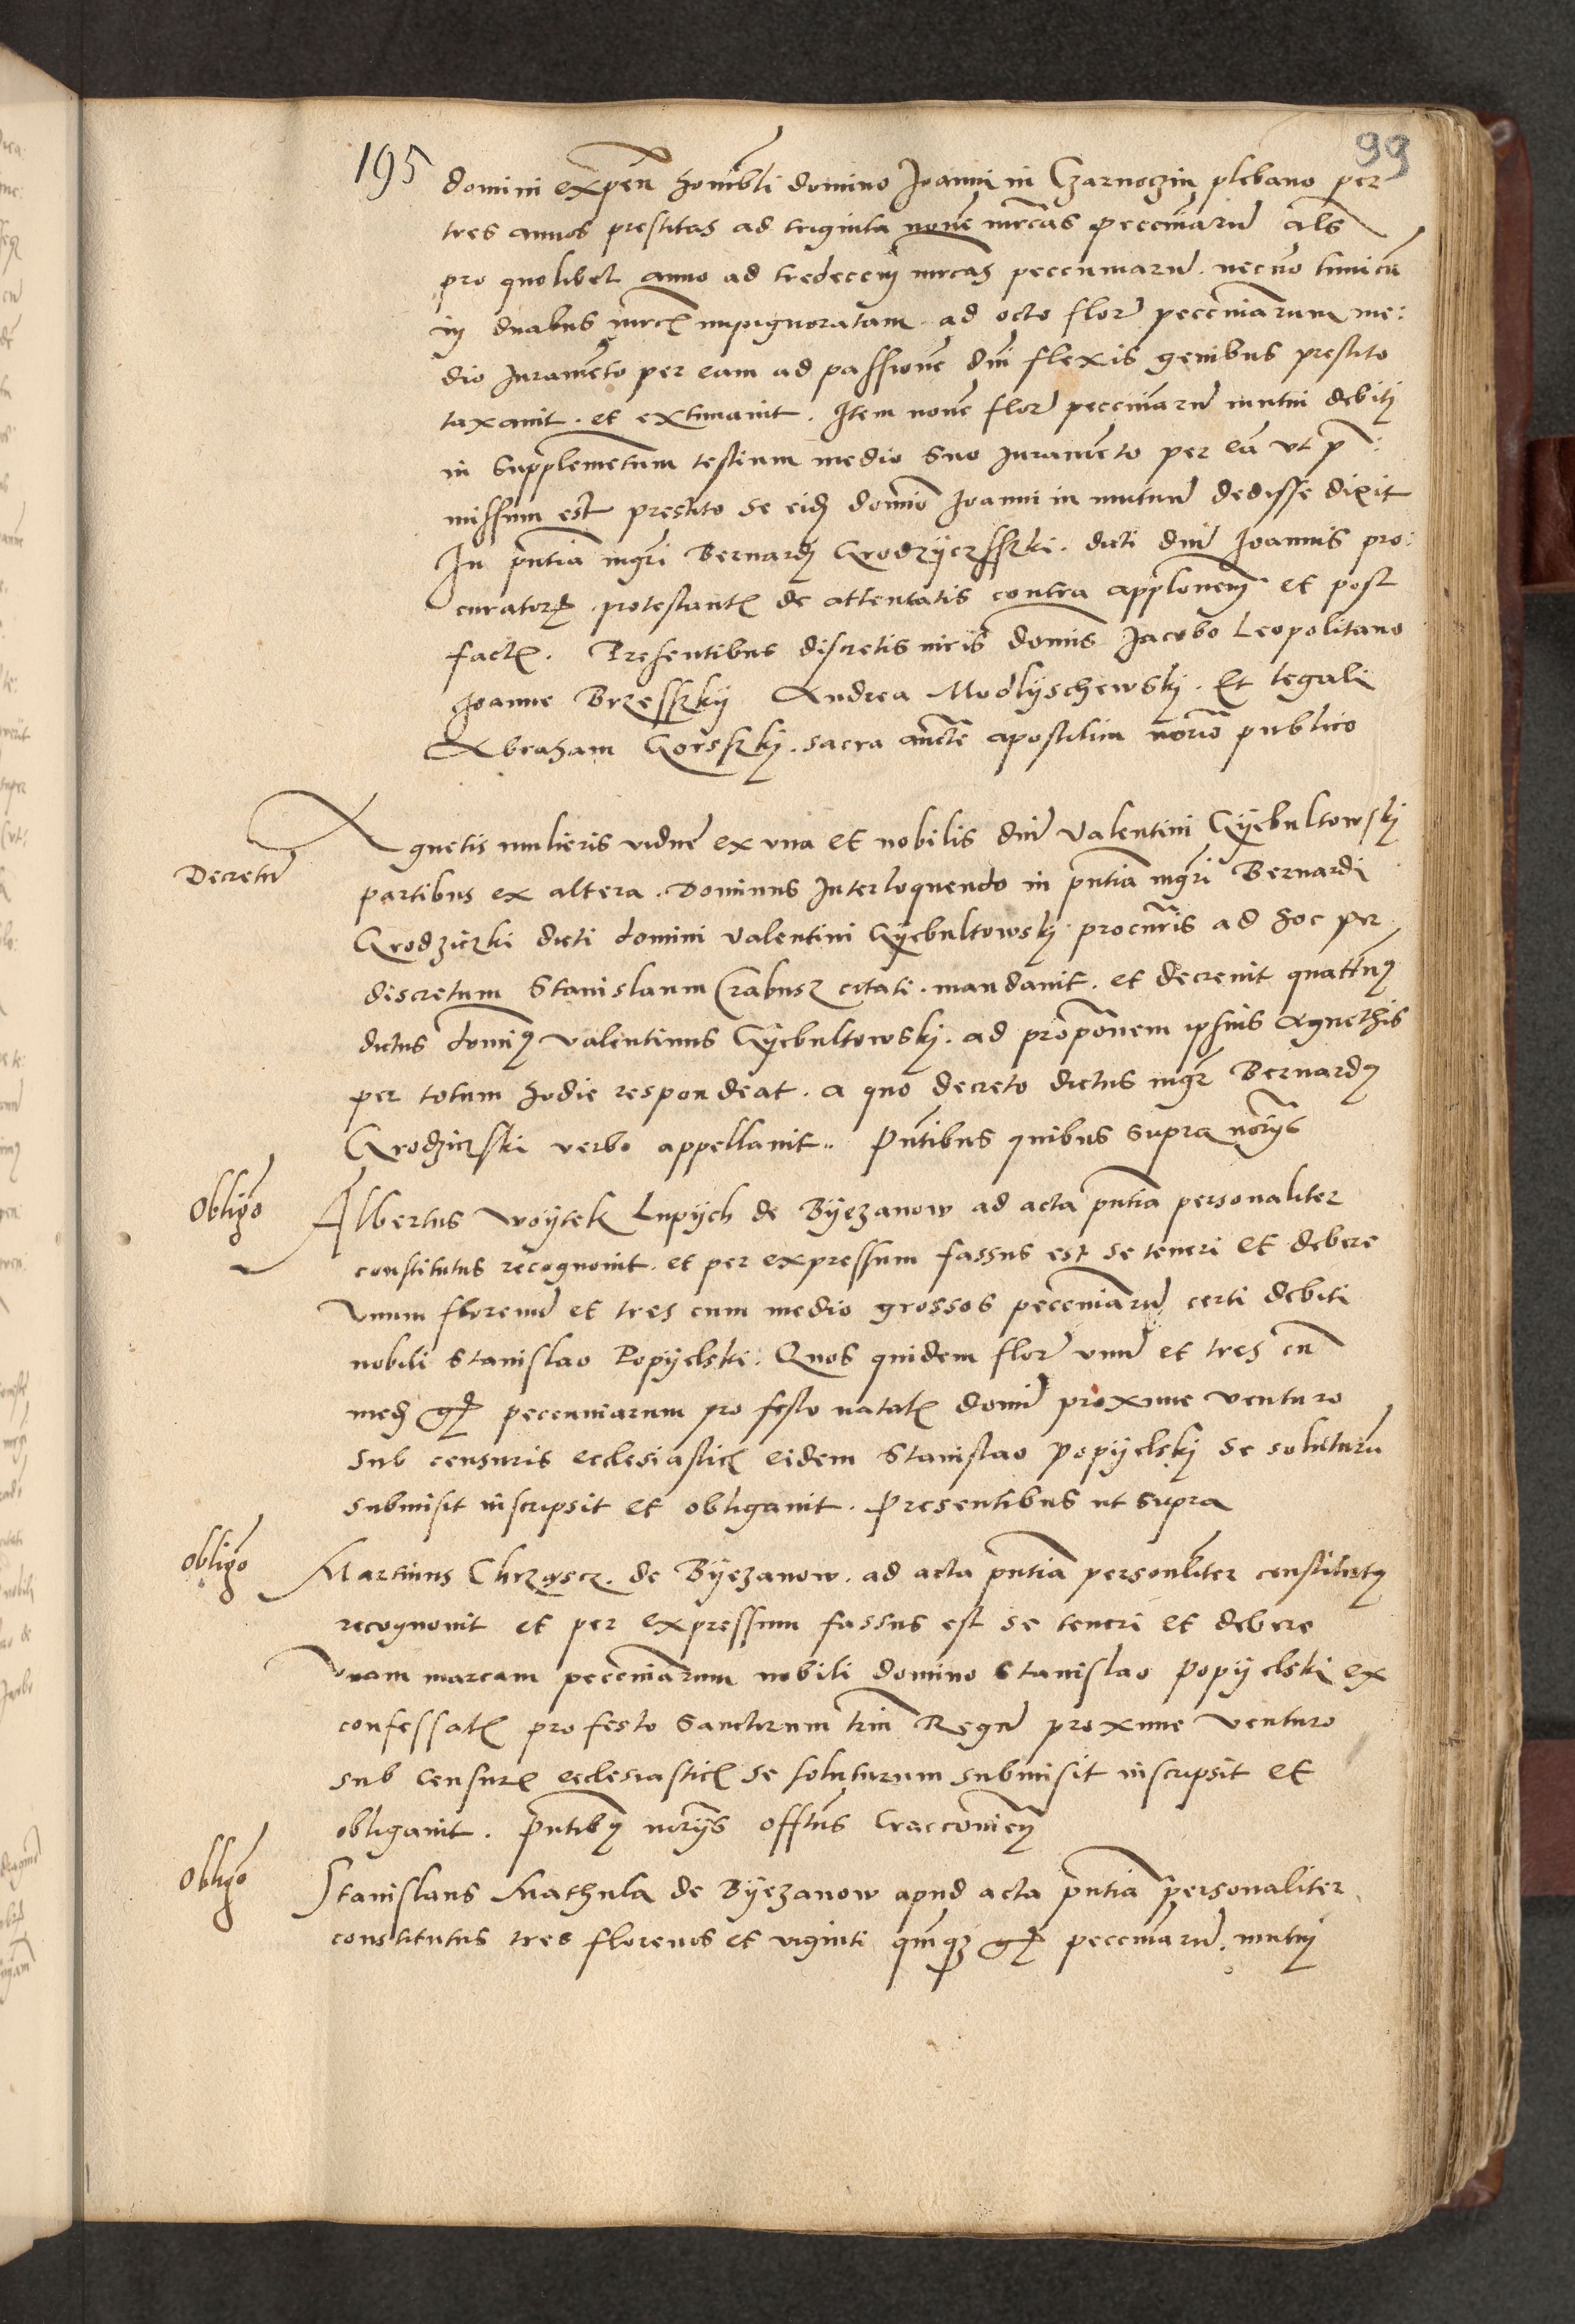 195
99
domini expen honorabli domino Joanni in Czarnoczin plebano per
tres annos prestitas ad triginta novem mrcas pecuniarum als
pro quolibet anno ad tredecem mrcas peccuniarum. necno tunicam
in duabus mrcis impignoratam ad octo flor peccuniarum me:
dio Juramento per eam ad passione dni flexis genibus prestito
taxavit. et extimavit. Item nove flor peccuniarum mutui debiti
in Supplementum testium medio suo Juramento per ea ut p:
missum est prestito se eidem domino Joanni in mutuum dedisse dixit
In pntia mgri Bernardi Grodzyczsski. dicti dni Joannis pro:
curatoris protestantis de attentatis contra applonem et post
factis. Presentibus discretis viris dominis Jacobo Leopolitano
Joanne Brzesszky Andrea Modlyschewsky. Et legali
Abraham Gorsszky. sacra aucte apostolica notario publico
Decretum
Agnetis mulieris vidue ex una et nobilis dni Valentini Gyebultowsky
partibus ex altera. Dominus Interloquendo in pntia mgri Bernardi
Grodziczki dicti domini Valentini Gyebultowsky procuris ad hoc per
discretum Stanislaum Crabusz citati. mandavit. et decrevit quattenus
dictus dominus Valentinus Gyebultowsky. ad proponem ipsius Agnethis
per totum hodie respondeat. a quo decreto dictus mgr Bernardus
Grodziczski verbo appellavit.. Pntibus quibus supra notariis
Obligo
Albertus Woytek Lupych de Byezanow ad acta pntia personaliter
constitutus recognovit. et per expressum fassus est se teneri et debere
Unum florenum et tres cum medio grossos pecceniarum certi debiti
nobili Stanislao Popyelski. Quos quidem flor unum et tres cum
medio gr peccuniarum pro festo natalis domini proxime venturo
sub censuris ecclesiasticis eidem Stanislao Popyelsky se soluturum
submisit inscripsit et obligavit. Presentibus ut supra
Obligo
Martinus Chrząscz. de Byezanow. ad acta pntia personliter constitutus
recognovit et per expressum fassus est se teneri et debere
Unam marcam pecceniarum nobili domino Stanislao Popyelski ex
confessatis pro festo Sanctorum trium Regum proxime venturo
sub censuris ecclesiasticis se soluturum submisit inscripsit et
obligavit. Pntibus notariis offitus Craccovien
Obligo
Stanislaus Mathula de Byezanow apud acta pntia personaliter
constitutus tres florenos et viginti quinque gr peccuniarum. mutui